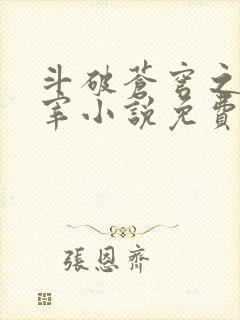 斗破蒼穹之
宰小說免費
張恩齊